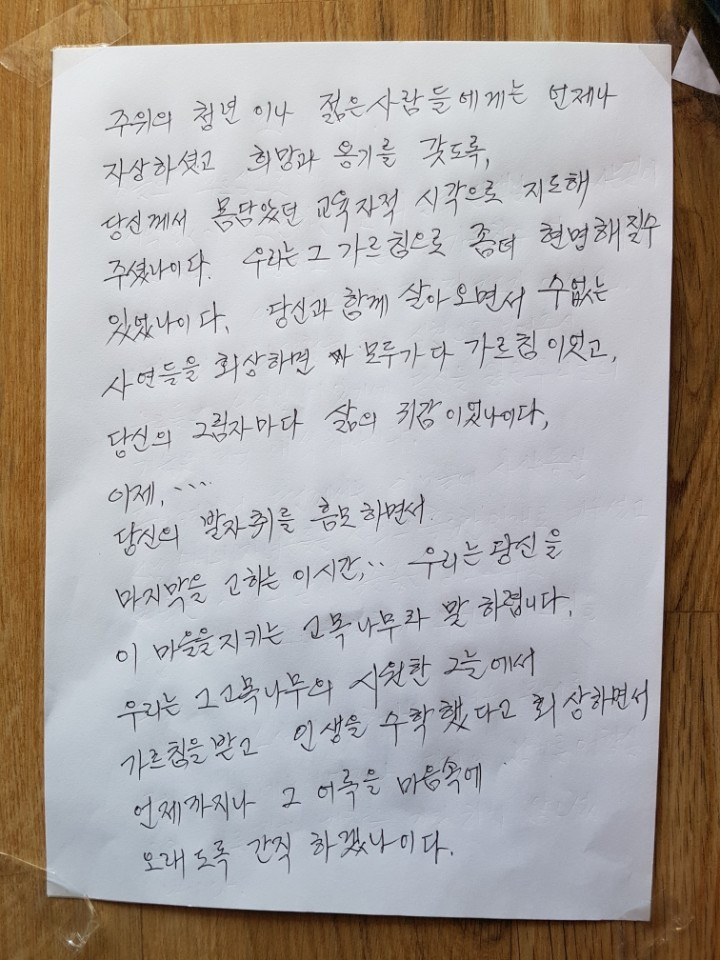 주위의 청년 이나 젊은사람들에게는 언제나
자상하셨고 희망과 용기를 갖도록,
당신께서 몸담았던 교육자적 시각으로 지도해
주셨나이다. 우리는 그 가르침으로 좀더 현명해질수
있었나이다. 당신과 함께 살아오면서 수없는
사연들을 회상하면 모두가 다 가르침이었고,
당신의 그림자마다 삶의 귀감이었나이다,
이제,....
당신의 발자취를 흠모하면서
마지막을 고하는 이시간,.. 우리는 당신을
이 마을을지키는 고목나무라 말 하렵니다.
우리는 그고목나무의 시원한 그늘에서
가르침을받고 인생을 수학했다고 회상하면서
언제까지나 그 어록을 마음속에
오래도록 간직 하겠나이다.